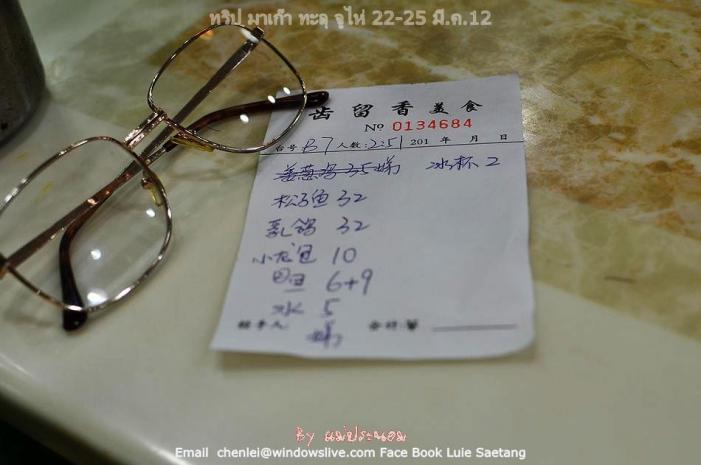 ทริป มาเก๊า ทะลุ จูไห่ 22-25 มี.ค.12
齿留香美食
No 0134684
台号 B7 人数: 201 年 月 日
姜葱鸡 35 冰杯 2
松子鱼 32
乳鸽 32
小龙包 10
6+9
水 5
经手人: 合计:
By แม่ประนอม
Email chenlei@windowslive.com Face Book Luie Saetang